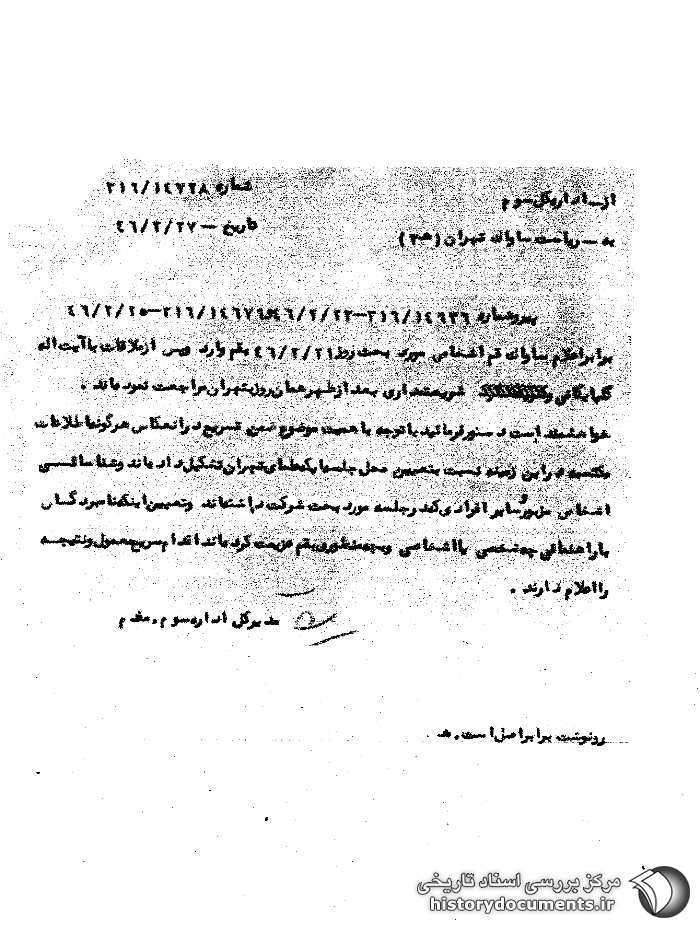 از – اداره کل سوم شماره ۳۱۶/۱۴۷۲۸
به – ریاست ساواک تهران (۳ﻫ) تاریخ – ۴۶/۲/۲۷
پیرو شماره ۳۱۶/۱۴۶۳۶–۴۶/۲/۲۳ و ۳۱۶/۱۴۶۷۶–۴۶/۲/۲۵
برابر اعلام ساواک قم اشخاص مورد بحث روز ۴۶/۲/۲۱ بقم وارد و پس از ملاقات با آیت اله
گلپایگانی و شریعتمداری بعد از ظهر همان روز بتهران مراجعت نموده اند .
خواهشمند است دستور فرمائید با توجه باهمیت موضوع ضمن تسریع در انعکاس هرگونه اطلاعات
مکتسبه در این زمینه نسبت بتعیین محل جلسه ایکه علمای تهران تشکیل داده اند و شناسائی
اشخاص مزبور و سایر افرادی که در جلسه مورد بحث شرکت داشته اند و تعیین اینکه نامبردگان
با راهنمائی چه شخصی یا اشخاصی و بچه منظوری بقم عزیمت کرده اند اقدام سریع معمول و نتیجه
را اعلام دارند .
مدیر کل اداره سوم . مقدم
رونوشت برابر اصل است . ﻫ
مرکز بررسی اسناد تاریخی
historydocuments.ir